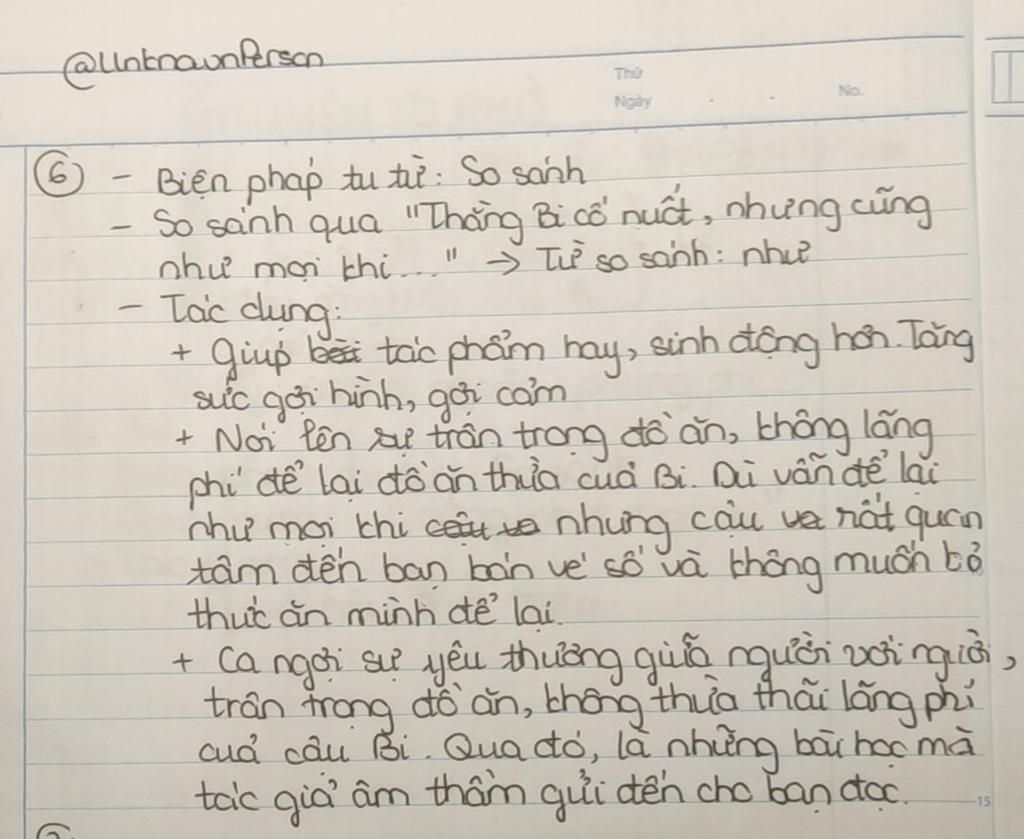 @UnknownPerson
Thứ
Ngày . - No.
⑥ - Biện pháp tu từ: So sánh
- So sánh qua "Thằng Bi cố nuốt, nhưng cũng
như mọi khi..." → Từ so sánh: như
- Tác dụng:
+ Giúp bài tác phẩm hay, sinh động hơn. Tăng
sức gợi hình, gợi cảm
+ Nói lên sự trân trọng đồ ăn, không lãng
phí để lại đồ ăn thừa của Bi. Dù vẫn để lại
như mọi khi cậu ve nhưng cậu ve rất quan
tâm đến bạn bán vé số và không muốn bỏ
thức ăn mình để lại.
+ Ca ngợi sự yêu thương giữa người với người,
trân trọng đồ ăn, không thừa thãi lãng phí
của cậu Bi. Qua đó, là những bài học mà
tác giả âm thầm gửi đến cho bạn đọc.
15